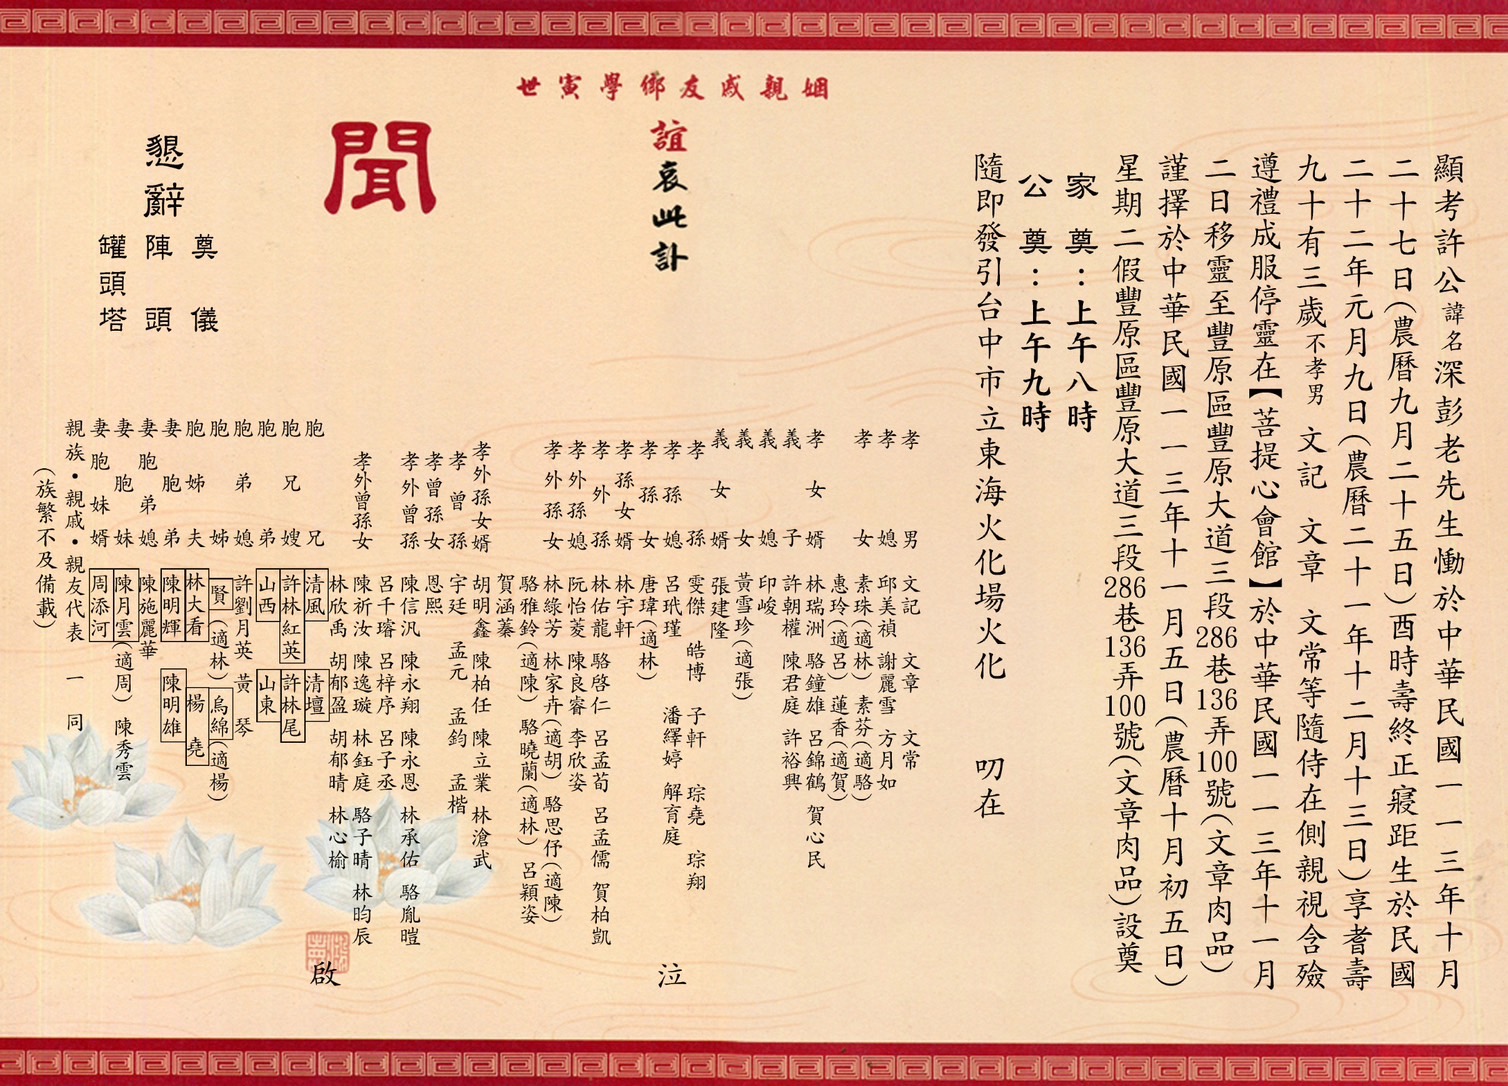 顯考許公諱名深彭老先生慟於中華民國一一三年十月
二十七日(農曆九月二十五日)酉時壽終正寢距生於民國
二十二年元月九日(農曆二十一年十二月十三日)享耆壽
九十有三歲不孝男 文記 文章 文常等隨侍在側親視含殮
遵禮成服停靈在【菩提心會館】於中華民國一一三年十一月
二日移靈至豐原區豐原大道三段286巷136弄100號(文章肉品)
謹擇於中華民國一一三年十一月五日(農曆十月初五日)
星期二假豐原區豐原大道三段286巷136弄100號(文章肉品)設奠
家奠:上午八時
公奠:上午九時
隨即發引台中市立東海火化場火化 叨在
姻親戚友鄉學寅世
誼哀此訃
聞
孝男 文記 文章 文常
孝媳 邱美禎 謝麗雪 方月如
孝女 素珠(適林) 素芬(適駱)
惠玲(適呂) 蓮香(適賀)
孝女婿 林瑞洲 駱鐘雄 呂錦鶴 賀心民
義子 許朝權 陳君庭 許裕興
義媳 印峻
義女 黃雪珍(適張)
義女婿 張建隆
孝孫 雯傑 皓博 子軒 琮堯 琮翔
孝孫媳 呂玳瑾 潘繹婷 解育庭
孝孫女 唐瑋(適林)
孝孫女婿 林宇軒
孝外孫 林佑龍 駱啓仁 呂孟荀 呂孟儒 賀柏凱
孝外孫媳 阮怡菱 陳良睿 李欣姿
孝外孫女 林綠芳 林家卉(適胡) 駱思伃(適陳)
駱雅鈴(適陳) 駱曉蘭(適林) 呂穎姿
賀涵蓁
孝外孫女婿 胡明鑫 陳柏任 陳立業 林滄武
孝曾孫 宇廷 孟元 孟鈞 孟楷
孝曾孫女 恩熙
孝外曾孫 陳信汎 陳永翔 陳永恩 林承佑 駱胤暟
呂千睿 呂梓序 呂子丞
孝外曾孫女 陳祈汝 陳逸璇 林鈺庭 駱子晴 林昀辰
林欣禹 胡郁盈 胡郁晴 林心榆
胞兄 清風 清壇
胞兄嫂 許林紅英 許林尾
胞弟 山西 山東
胞弟媳 許劉月英 黃琴
胞姊 賢(適林) 烏綿(適楊)
胞姊夫 林大看 楊堯
妻胞弟 陳明輝 陳明雄
妻胞弟媳 陳施麗華
妻胞妹 陳月雲(適周) 陳秀雲
妻胞妹婿 周添河
親族•親戚•親友代表 一同
(族繁不及備載)
泣
啟
懇辭
奠儀
陣頭
罐頭塔